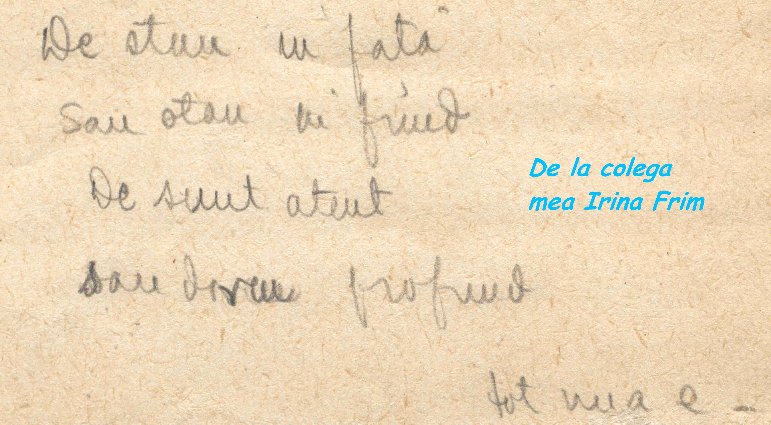 De stau in față
Sau stau in fund
De sunt atent
sau dorm profund
De la colega
mea Irina Frim
tot una e -